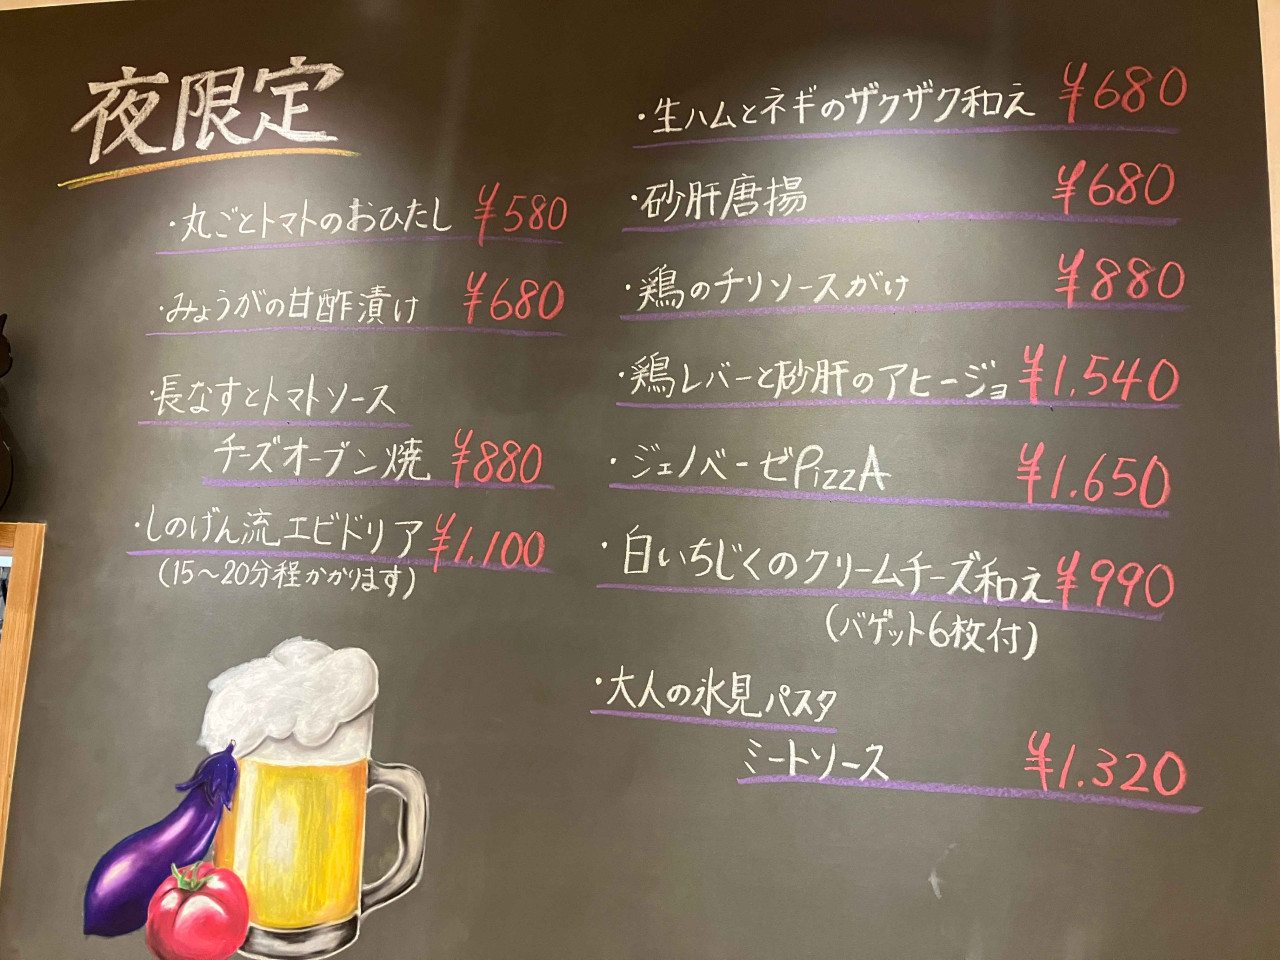 夜限定
・丸ごとトマトのおひたし ¥580
・みょうがの甘酢漬け ¥680
・長なすとトマトソース
チーズオーブン焼 ¥880
・しのげん流エビドリア ¥1,100
(15〜20分程かかります)
・生ハムとネギのザクザク和え ¥680
・砂肝唐揚 ¥680
・鶏のチリソースがけ ¥880
・鶏レバーと砂肝のアヒージョ ¥1,540
・ジェノベーゼPizzA ¥1.650
・白いちじくのクリームチーズ和え ¥990
(バゲット6枚付)
・大人の氷見パスタ
ミートソース ¥1.320